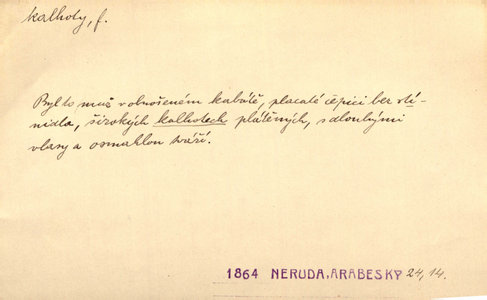 kalhoty, f.
Byl to muž v obnošeném kabátě, placaté čepici bez stí-
nidla, širokých kalhotech plátěných, s dlouhými
vlasy a osmahlou tváří.
1864 NERUDA, ARABESKY 24, 14.